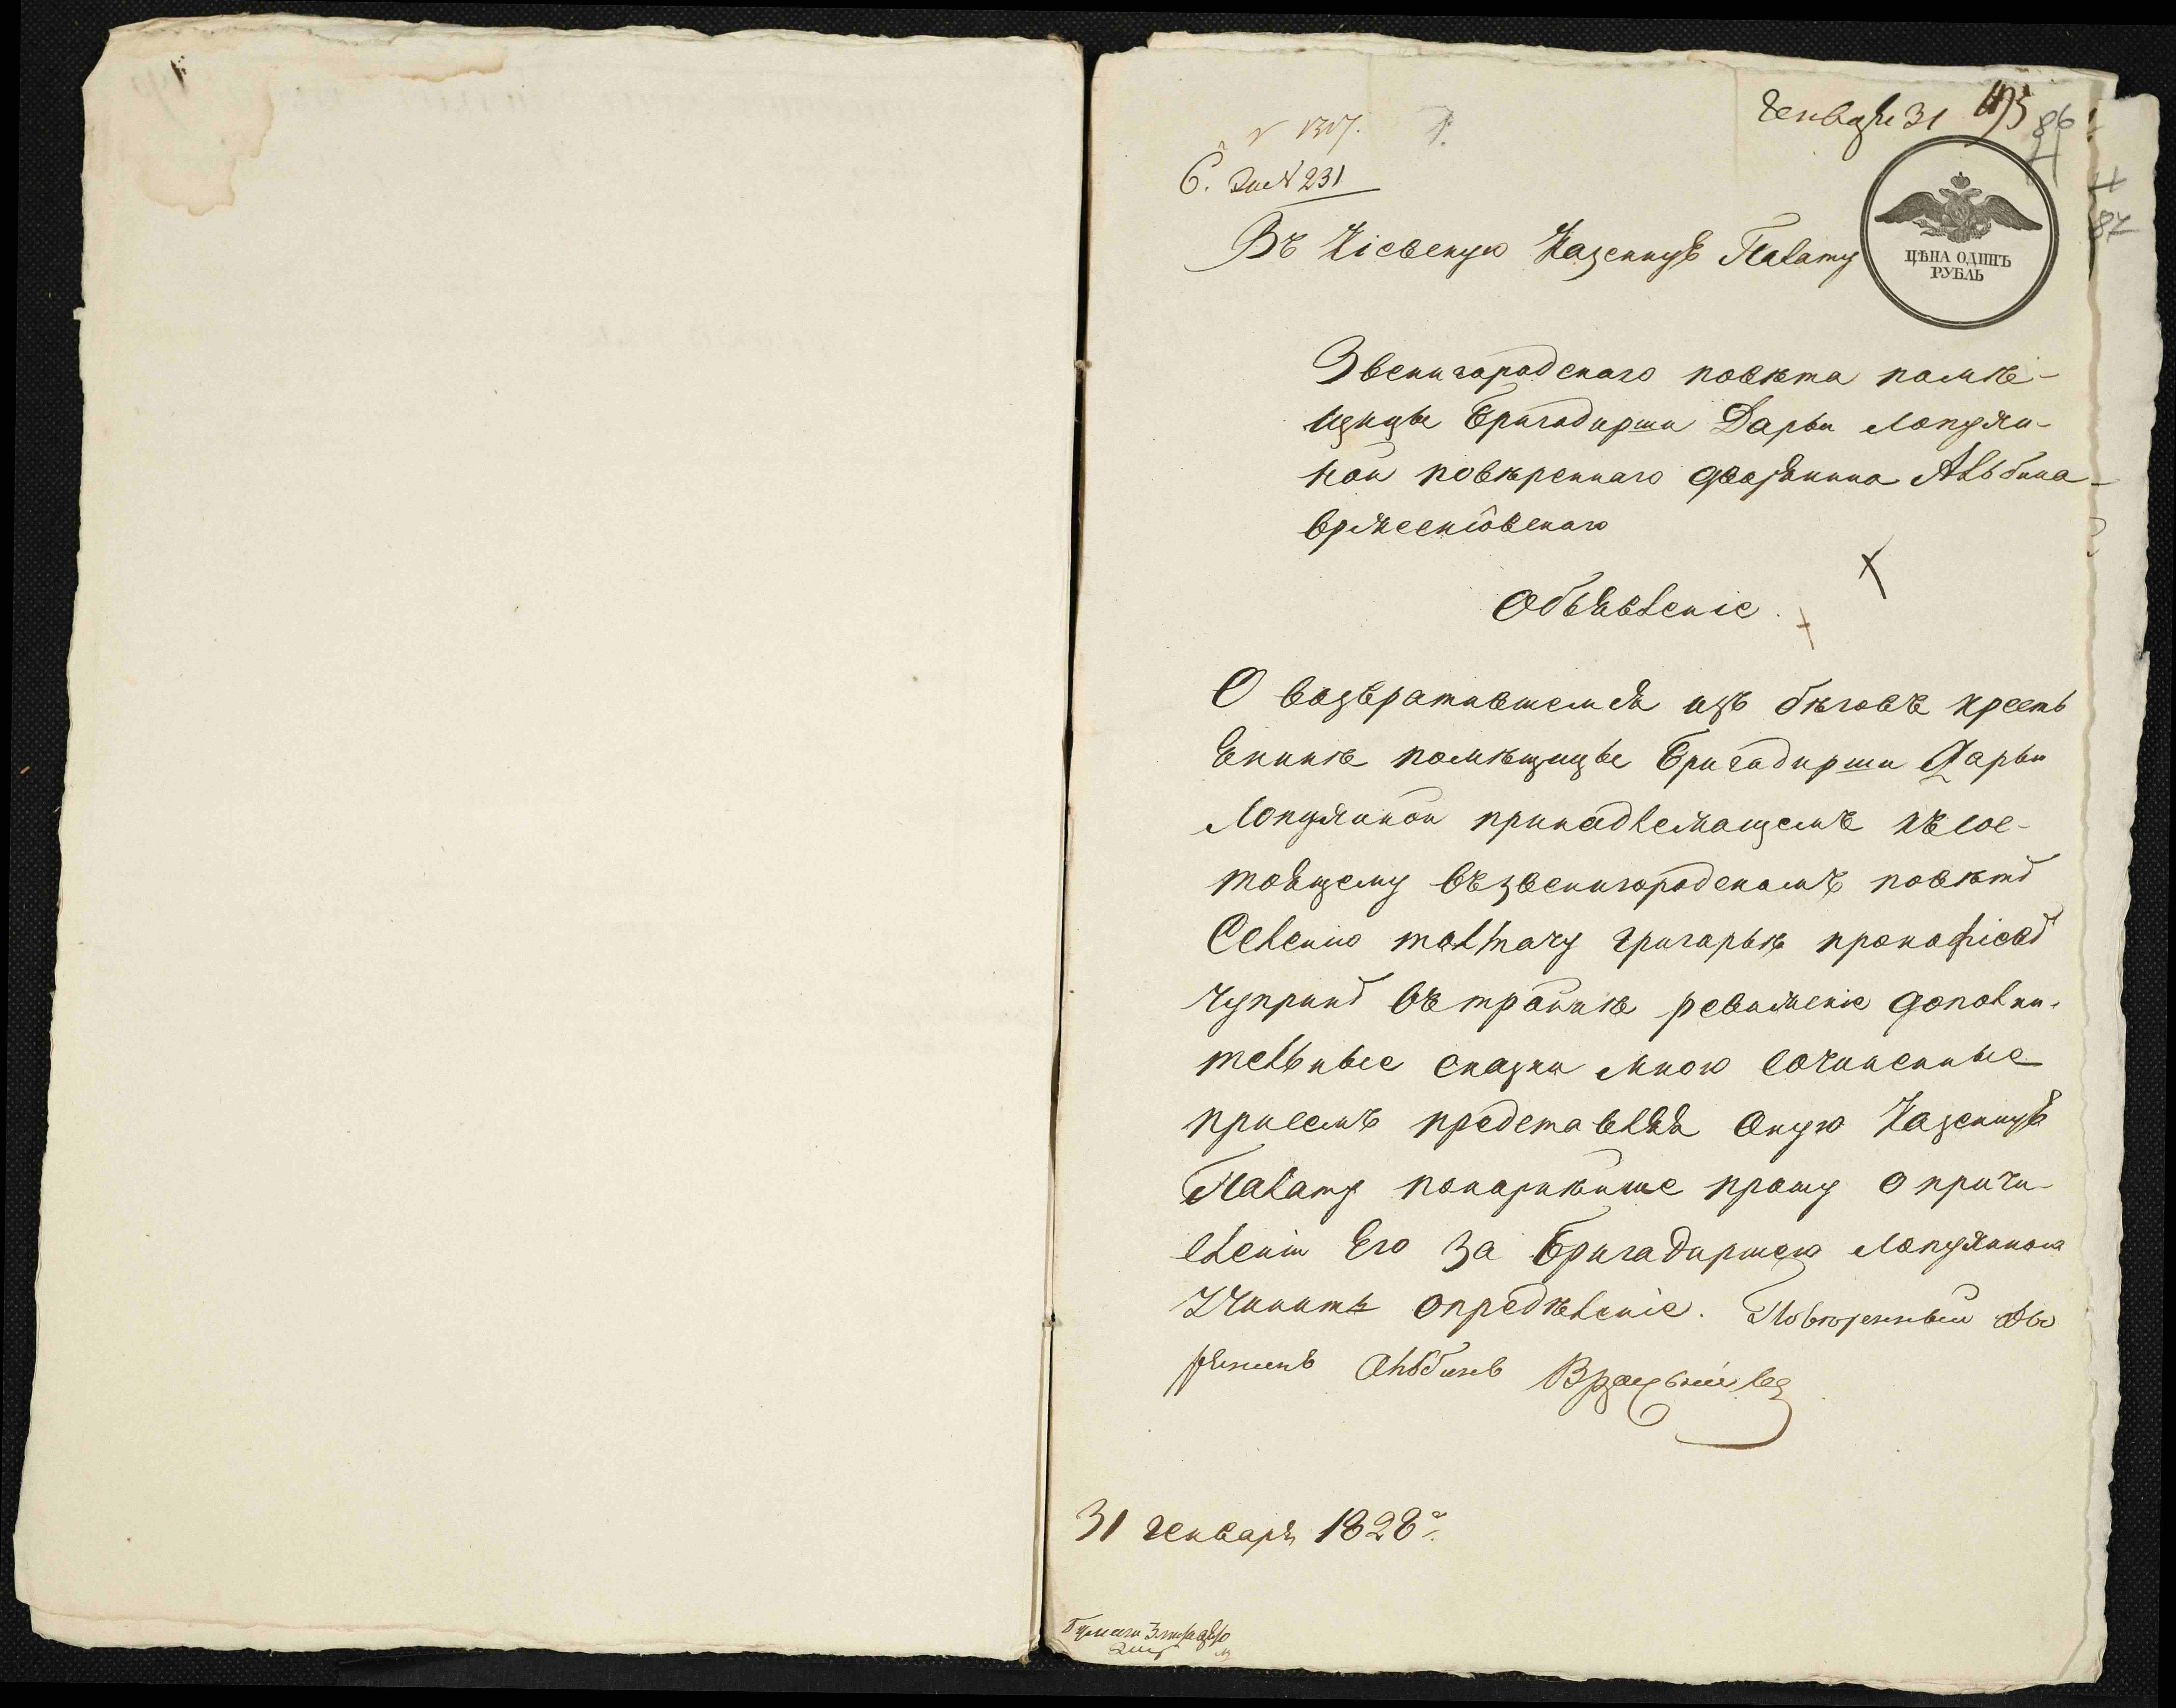 Генваря 31 195
86
№ 1317.
6. Дие № 231
87
Въ Кіевскую Казенную Палату
ЦѢНА ОДИНЪ
РУБЛЬ
Звенигородскаго повѣта помѣ-
щицы Бригадирши Дарьи Лопухи-
ной повѣреннаго дворянина Альбина
Объявленіе.
О возвратившемся изъ бѣговъ кресть
янинѣ помѣщицы Бригадирши Дарьи
Лопухиной принадлежащемъ къ сос-
тоящему въ звенигородскомъ повѣтѣ
Селенію толмачу григорьѣ прокофіевѣ
чупринѣ въ тройнѣ ревижскіе дополни-
тельные сказки мною сочиненные
присемъ представляя Оную Казенную
Палату покорнѣйше прошу о причи-
сленіи Его За Бригадиршею Лопухиною
Учинить опредѣленіе. Повѣренный дво
рянинъ Альбинъ
31 генваря 1828го.